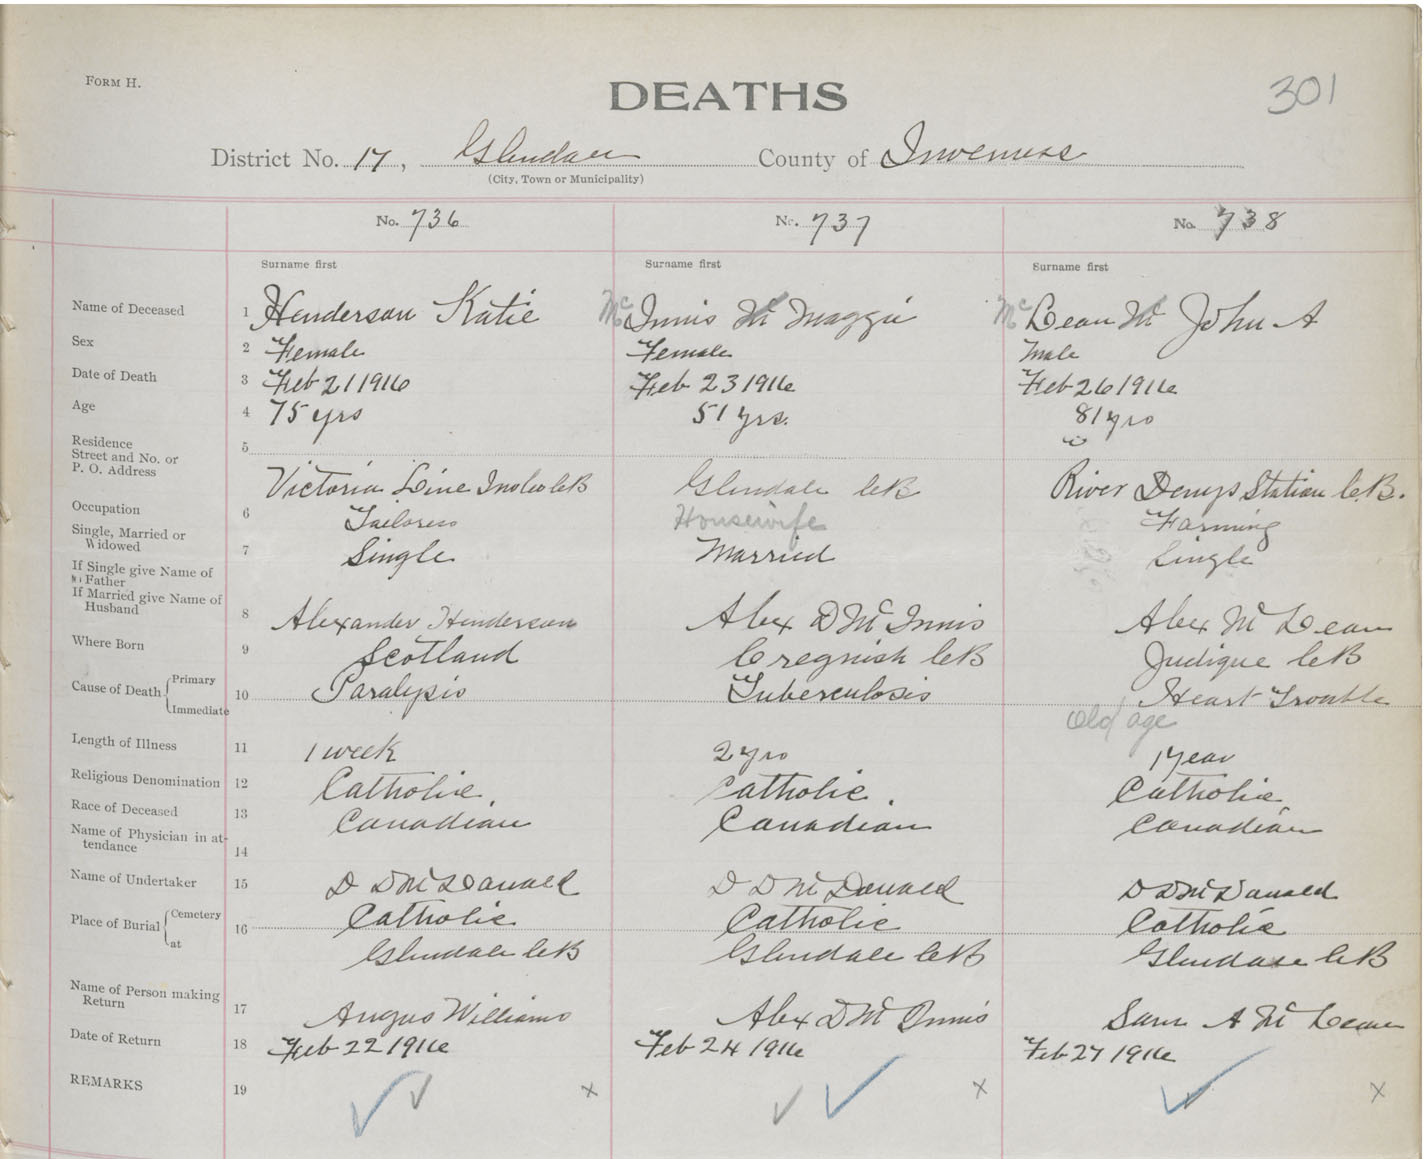 FORM H.
DEATHS
301
District No. 17, Glendale County of Inverness
(City, Town or Municipality)
No. 736 No. 737 No. 738
Surname first Surname first Surname first
Name of Deceased 1 Henderson Katie Mc Innis Mc Maggie Mc Lean Mc John A
Sex 2 Female Female Male
Date of Death 3 Feb 21 1916 Feb 23 1916 Feb 26 1916
Age 4 75 yrs 51 yrs. 81 yrs
Residence
Street and No. or
P. O. Address 5
Victoria Line CB Glendale CB River Denys Station C.B.
Occupation 6 Tailoress Housewife Farming
Single, Married or
Widowed 7 Single Married Single
If Single give Name of
Father
If Married give Name of
Husband 8 Alexander Henderson Alex D McInnis Alex McLean
Where Born 9 Scotland Cregnish CB Judique CB
Cause of Death Primary 10 Paralysis Tuberculosis Heart Trouble
Immediate Old age
Length of Illness 11 1 week 2 yrs 1 year
Religious Denomination 12 Catholic Catholic Catholic
Race of Deceased 13 Canadian Canadian Canadian
Name of Physician in at-
tendance 14
Name of Undertaker 15 D D McDonald D D McDonald D D McDonald
Place of Burial Cemetery 16 Catholic Catholic Catholic
at Glendale CB Glendale CB Glendale CB
Name of Person making
Return 17 Angus Williams Alex D McInnis Sam A McLean
Date of Return 18 Feb 22 1916 Feb 24 1916 Feb 27 1916
REMARKS 19 x x x